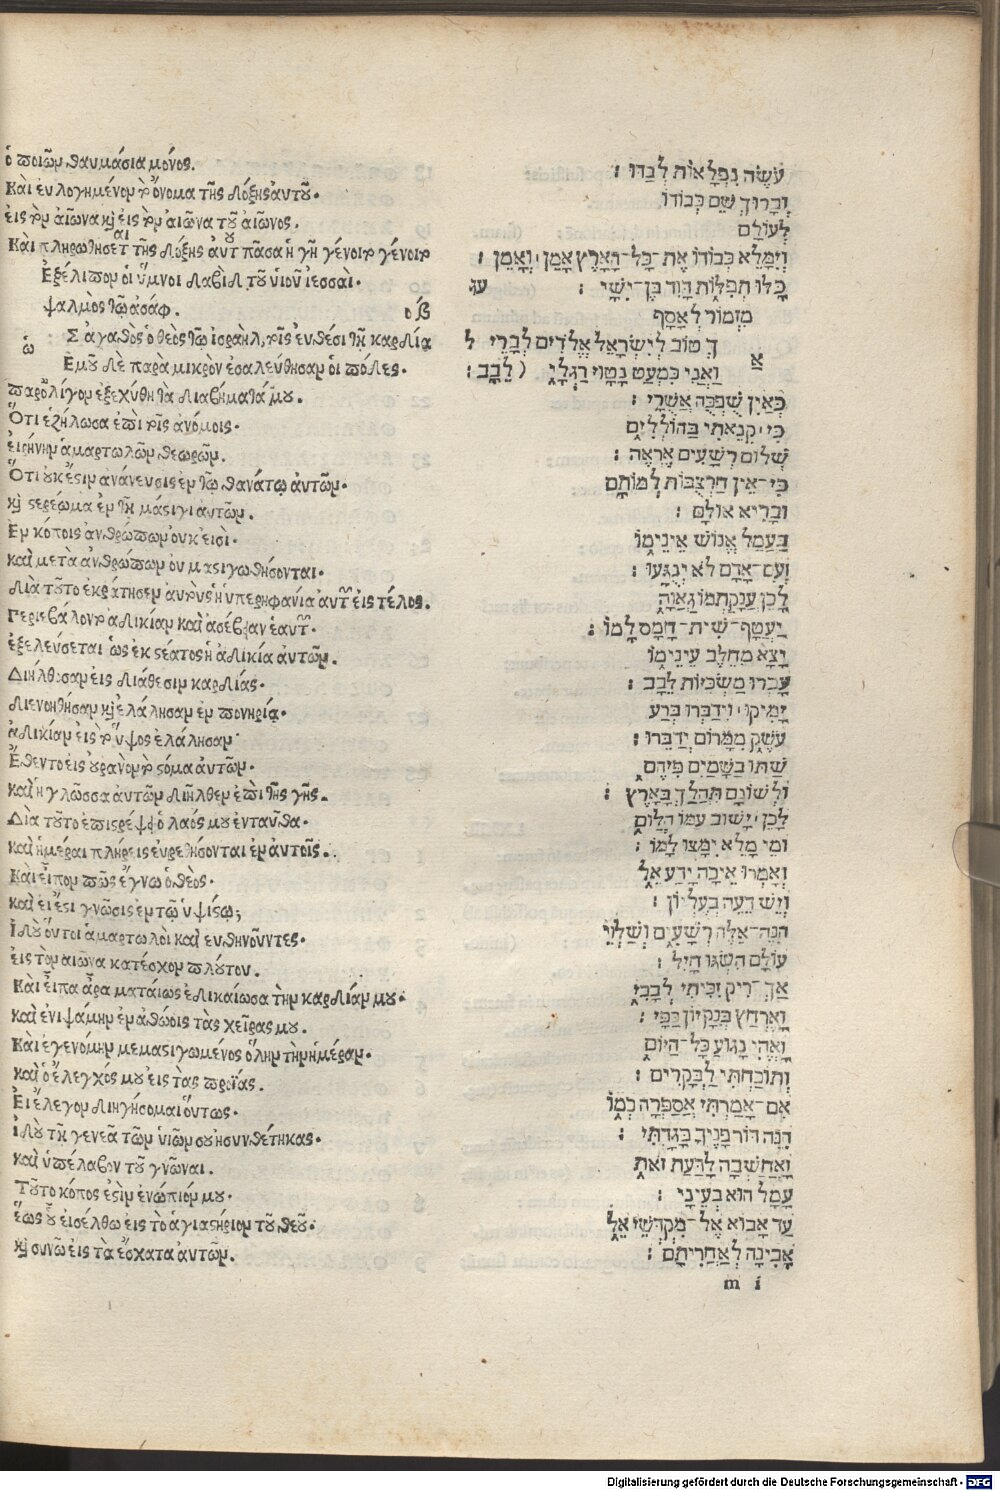 ὁ ποιῶν θαυμάσια μόνος.
Καὶ ἐυλογημένον τὸ ὄνομα τῆς δόξης ἀυτοῦ·
ἐις τὸν αἰῶνα κὶ ἐις τὸν αἰῶνα τοῦ αἰῶνος.
Καὶ πληρωθήσεται τῆς δόξης ἀυτοῦ πᾶσα ἡ γῆ γένοιτο γένοιτο
Ἐξέλιπον οἱ ὕμνοι δαβὶδ τοῦ ὑιοῦ ἰεσσαὶ·
ψαλμὸς τῷ ἀσάφ. οβ
ὡ Σ ἀγαθὸς ὁ θεὸς τῷ ἰσραὴλ, τοῖς ἐυθέσι τῇ καρδίᾳ
Ἐμοῦ δὲ παρὰ μικρὸν ἐσαλεύθησαν ὁι πόδες·
παρολίγον ἐξεχύθη τὰ διαβήματά μου.
Ὅτι ἐζήλωσα ἐπὶ τοῖς ἀνόμοις·
ἐιρήνην ἁμαρτωλῶν θεωρῶν.
Ὅτι ουκ ἔστιν ἀνάνευσις ἐν τῷ θανάτῳ ἀυτῶν·
κὶ στερέωμα ἐν τῇ μάστιγι αυτῶν.
Ἐν κόποις ἀνθρώπων ουκ εισὶ·
καὶ μετὰ ἀνθρώπων ου μαστιγωθήσονται·
Διὰ τοῦτο ἐκράτησεν ἀυτοὺς ἡ υπερηφανία ἀυτῶν ἐις τέλος.
Περιεβάλοντο ἀδικίαν καὶ ἀσέβειαν ἑαυτῶν·
ἐξελεύσεται ὡς ἐκ στέατος ἡ ἀδικία ἀυτῶν.
Διήλθοσαν εἰς διάθεσιν καρδίας·
διενοήθησαν κὶ ἐλάλησαν ἐν πονηρίᾳ·
ἀδικίαν εἰς τὸ ὕψος ἐλάλησαν
Ἔθεντο εἰς ουρανὸν τὸ στόμα ἀυτῶν·
καὶ ἡ γλῶσσα ἀυτῶν διῆλθεν ἐπὶ τῆς γῆς.
Διὰ τοῦτο ἐπιστρέψει ὁ λαός μου ἐνταῦθα·
καὶ ἡμέραι πλήρεις ἐυρεθήσονται ἐν ἀυτοῖς.
Καὶ εἶπον πῶς ἔγνω ὁ θεὸς·
καὶ ἐι ἔστι γνῶσις ἐν τῷ ὑψίστῳ;
Ἰδοὺ ὅυτοι ἁμαρτωλοὶ καὶ ευθηνοῦντες·
ἐις τὸν αιῶνα κατέσχον πλούτου.
Καὶ εἶπα ἆρα ματάιως ἐδικαίωσα τὴν καρδίαν μου·
καὶ ἐνιψάμην ἐν ἀθώοις τὰς χεῖρας μου.
Καὶ ἐγενόμην μεμαστιγωμένος ὅλην τὴν ἡμέραν·
καὶ ὁ ἔλεγχός μου εἰς τὰς πρωΐας.
Ἐι ἔλεγον διηγήσομαι ὅυτως·
ἰδοὺ τῇ γενεᾷ τῶν ὑιῶν σου ἠσυνθέτηκας·
καὶ ὑπέλαβον τοῦ γνῶναι.
Τοῦτο κόπος ἐστὶν ἐνώπιόν μου·
ἕως οὗ εἰσέλθω εἰς τὸ ἁγιαστήριον τοῦ θεοῦ·
κὶ συνῶ εἰς τὰ ἔσχατα ἀυτῶν.
עֹשֵׂה נִפְלָאוֹת לְבַדּוֹ :
וּבָרוּךְ שֵׁם כְּבוֹדוֹ
לְעוֹלָם
וְיִמָּלֵא כְבוֹדוֹ אֶת־כָּל־הָאָרֶץ אָמֵן · וְאָמֵן :
כָּלּוּ תְפִלּוֹת דָּוִד בֶּן־יִשָׁי : עג
מִזְמוֹר לְאָסָף
א ךְ טוֹב לְיִשְׂרָאֵל אֱלֹדִים לְבָרֵי ל
וַאֲנִי כִּמְעַט נָטָוּי רַגְלָי ( לֵבָב :
כְּאַיִן שֻׁפְּכֻה אֲשֻׁרָי :
כִּי · קִנֵּאתִי בַּהוֹלְלִים
שְׁלוֹם רְשָׁעִים אֶרְאֶה :
כִּי־אֵין חַרְצֻבּוֹת לְמוֹתָם
וּבָרִיא אוּלָם :
בַּעֲמַל אֱנוֹשׁ אֵינֵימוֹ
וְעִם־אָדָם לֹא יְנֻגָּעוּ :
לָכֵן עֲנָקַתְמוֹ גַאֲוָה
יַעֲטָף־שִׁית־חָמָס לָמוֹ :
יָצָא מֵחֵלֶב עֵינֵימוֹ
עָבְרוּ מַשְׂכִּיּוֹת לֵבָב :
יָמִיקוּ · וִידַבְּרוּ בְרָע
עֹשֶׁק מִמָּרוֹם יְדַבֵּרוּ :
שַׁתּוּ בַשָּׁמַיִם פִּיהֶם
וּלְשׁוֹנָם תִּהֲלַךְ בָּאָרֶץ :
לָכֵן · יָשׁוּב עַמּוֹ הֲלוֹם
וּמֵי מָלֵא יִמָּצוּ לָמוֹ :
וְאָמְרוּ אֵיכָה יָדַע אֵל
וְיֵשׁ דֵּעָה בְעֶלְיוֹן :
הִנֵּה־אֵלֶּה רְשָׁעִים וְשַׁלְוֵי
עוֹלָם הִשְׂגּוּ חָיִל :
אַךְ־רִיק זִכִּיתִי לְבָבִי
וָאֶרְחַץ בְּנִקָּיוֹן כַּפָּי :
וָאֱהִי נָגוּעַ כָּל־הַיּוֹם
וְתוֹכַחְתִּי לַבְּקָרִים :
אִם־אָמַרְתִּי אֲסַפְּרָה כְמוֹ
הִנֵּה דוֹר פָּנֶיךָ בָגָדְתִּי :
וָאֲחַשְּׁבָה לָדַעַת זֹאת
עָמָל הוּא בְעֵינָי :
עַד אָבוֹא אֶל־מִקְדְּשֵׁי אֵל
אָבִינָה לְאַחֲרִיתָם :
m i
Digitalisierung gefördert durch die Deutsche Forschungsgemeinschaft - DFG